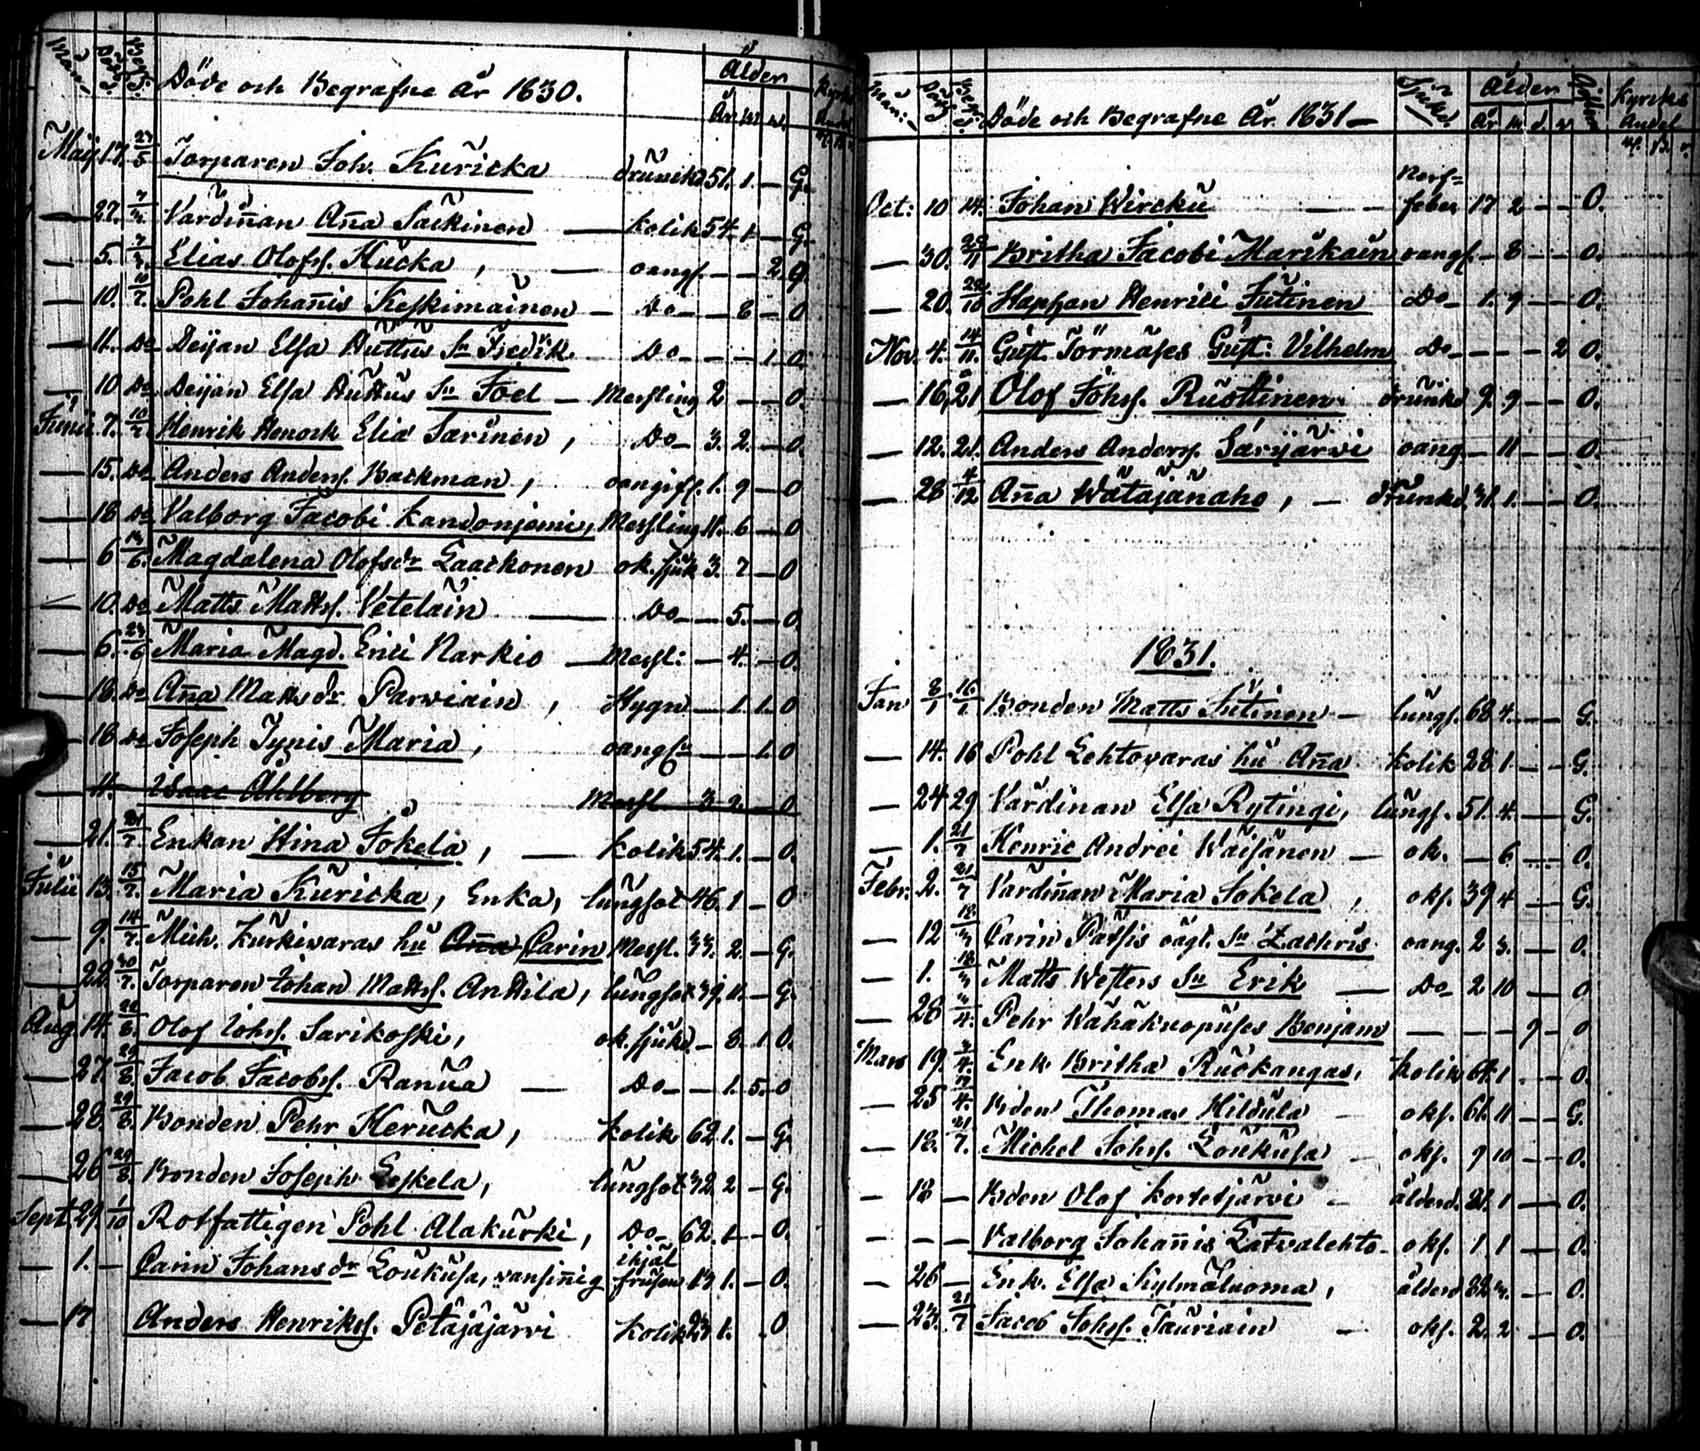 Mån: Död. Begr. Döde och Begrafne År 1830. Ålder År m d
Maij 17. 27/5 Torparen Joh. Kuricka drunkn 51. 1. — G.
— 27. Värdinnan Anna Säckinen — kolik 54. 1. — G.
— 5. Elias Olofss. Kucka, — oangf. — — 2. G
— 10. 10/7. Pohl Johannis Keskimainen — Do — — 8 — 0
— 11. Do Peijan Elsa Huttus Sn Fredrik — Do — — — 1. 0.
— 10. Do Peijan Elsa Huttus Sn Joel — Messling 2 — — 0.
Junii 7. Henrik Henock Eliæ Särinen, Do — 3. 2. — 0.
— 15. Do Anders Anderss. Backman, oangiff. 1. 9 — 0
— 18 Do Valborg Jacobi Kandonjemi, Messling 11. 6 — 0
— 6 Magdalena Olofsdr Laackonen ok. sjuk 3. 7 — 0
— 10. Do Matts Mattss. Vetelain — Do — — 5. — 0.
— 6. 23/6 Maria Magd. Erici Narkio — Messl: — 4. — 0.
— 18. Do Anna Mattsdr Parviain, Hygn — 1. 1. 0
— 18. Do Joseph Tynis Maria, oangfn — — 1. 0
— 11. — Isaac Ahlberg Messl 3 2 — 0
— 21. 21/7 Enkan Stina Jokela, — Kolik 54. 1. — 0.
Julii 13. 15/7. Maria Kuricka, Enka, lungsot 46. 1 — 0
— 9. 14/7. Mich. Kurkivaras hu Anna Carin Messl. 33. 2. — G.
— 22. 30/7. Torparen Johan Mattss. Anttila, lungsot 39. 11. — G.
Aug. 14. Olof Johss. Sarikoski, ok. sjukd — 8. 1 0.
— 27 29/8. Jacob Jacobss. Ranua — Do — — 1. 5. 0
— 28. 29/8. Bonden Pehr Kerucka, Kolik 62. 1. — G.
— 26 29/8. Bonden Joseph Leskela, lungsot 32. 2 — G.
Sept 29. 1/10. Rotfattigen Pohl Alakurki, Do — 62. 1 — 0.
— 1. — Carin Johansdr Loukusa, vansinnig ihjäl frusen 1. — 0.
— 17 Anders Henrikss. Petäjäjärvi Kolik 1. . 0
Mån: Död. Begr. Döde och Begrafne År 1831 — Sjukd. Ålder År m d Kyrks Andel
Oct: 10 14. Johan Wircku — — Nerf= feber 17 2 — — 0.
— 30. Britha Jacobi Marikain oangf. — 8 — — 0.
— 20. Henrici Jutinen Do — 1. 9 — — 0.
Nov. 4. 14/11. Gust. Törmäses Gust. Vilhelm Do — — — — 2 0.
— 16. 21 Olof Johss. Ruottinen drunkn 9. 9 — — 0.
— 12. 21. Anders Anderss. Särijärvi oang. — 11 — — 0.
— 28 4/12 Anna Wätäjänaho, — drunkd. 31. 1. — — 0.
1831.
Jan 8/1 Bonden Matts Jutinen — lungs. 68. 4. — — G.
— 14. 16 Pohl Lehtovaras hu Anna kolik 28 1. — — G.
— 24 29 Värdinan Elsa Rytingi, lungs. 51. 4. — G.
— 1. 21/7 Henric Andrei Wäisänen — ok. — 6 — — 0.
Febr. 2. 21/7 Värdinnan Maria Jokela, oks. 39 4 — — G.
— 12 Carin Patsis oägt. Sn Zachris oang. 2 3. — — 0.
— 1. Matts Westers Sn Erik — Do — 2 10 — 0
— 26 Pehr Wähäkuopuses Benjam — — — 9 — 0
Mars 19. Enk. Britha Ruokangas, Kolik 64. 1 . — 0.
— 25 Bden Thomas Hildula — oks. 61. 11 — — G.
— 18. 21/7. Michel Johss. Loukusa — oks. 9 10 — — 0.
— 18 — Bden Olof Kortetjärvi — ålderd. 81. 1 — — 0.
— — — Valborg Johannis Latvalehto — oks. 1. 1 — — 0.
— 26 — Enk. Elsa Kylmäluoma, ålderd 82 — — 0.
— 23. 21/7 Jacob Johss. Tauriain — oks. 2. 2 — — 0.